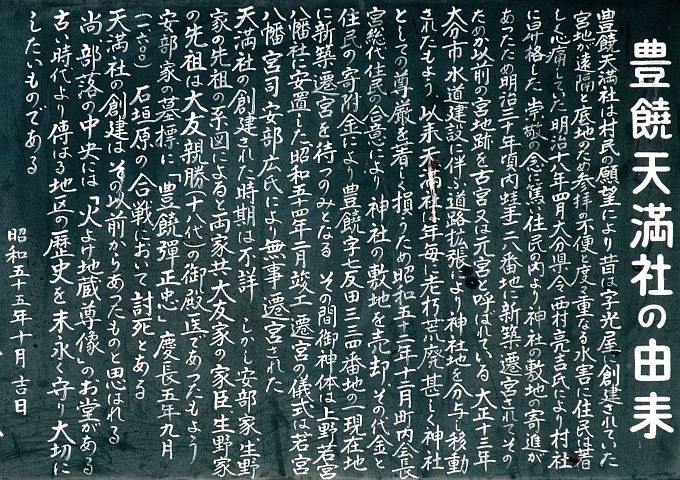 豊饒天満社の由来
豊饒天満社は村民の願望により昔は字光屋に創建されていた
宮地が遠隔と底地のため参拝の不便と度々重なる水害に住民は著
し心痛していた 明治十八年四月大分県令西村亮吉氏により村社
に昇格した 崇敬の念に篤い住民の内より神社の敷地の寄進が
あったため明治三十年頃内蛙手二八番地に新築遷宮されてその
ためか以前の宮地跡を古宮又は元宮と呼ばれている 大正十三年
大分市水道建設に伴ふ道路拡張により神社地を分与し移動
されたもよう 以来天満社は年毎に老朽荒廃甚しく神社
としての尊厳を著しく損うため昭和五十三年十二月町内会長
宮総代住民の合意により 神社の敷地を売却 その代金と
住民の寄附金により豊饒字二反田三三四番地の一現在地
に新築遷宮を待つのみとなる その間御神体は上野若宮
八幡社に安置した 昭和五十四年二月竣工 遷宮の儀式は若宮
八幡宮司安部広氏により無事遷宮された
天満社の創建された時期は不詳 しかし安部家、生野
家先祖の系図によると両家共大友家の家臣 生野家
の先祖は大友親勝(十八代)の御殿医であったもよう
安部家の墓標に「豊饒弾正忠」慶長五年九月
(一六〇〇) 石垣原の合戦において討死とある
天満社の創建は その以前からあったものと思はれる
尚部落の中央には「火よけ地蔵尊像」のお堂がある
古い時代より傳はる地区の歴史を末永く守り大切に
したいものである
昭和五十五年十月 吉日